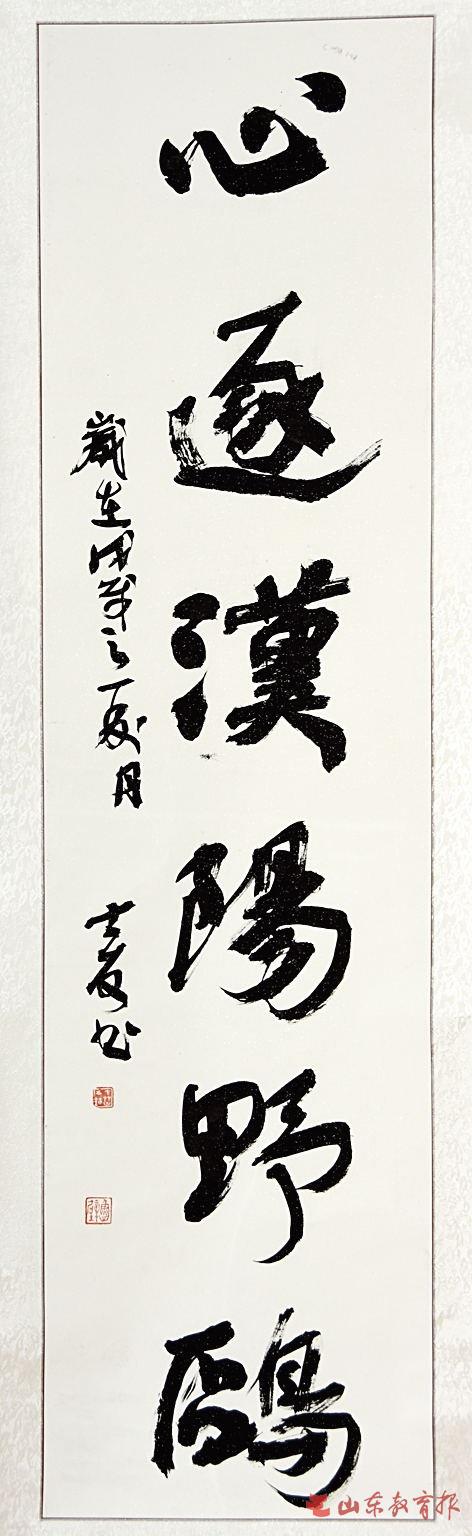 心逐漢陽野鷗
歲在戊戌之夏月
书
山东教育报